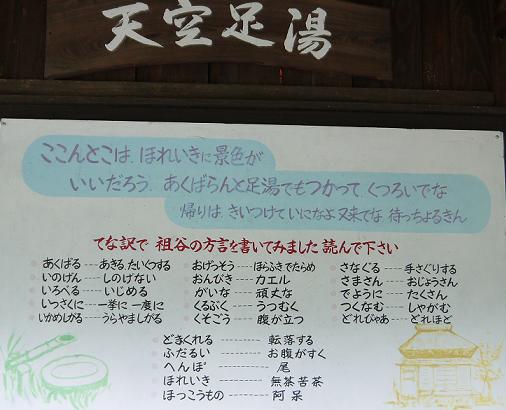 天空足湯
ここんとこは、ほれいきに景色が
いいだろう、あくばらんと足湯でもつかって、くつろいでな
帰りは、きいつけていになよ 又来てな、待っちょるきん
てな訳で 祖谷の方言を書いてみました 読んで下さい
あくばる……あきる、たいくつする
いのげん……しのげない
いろべる……いじめる
いっさくに……一挙に 一度に
いかめしがる……うらやましがる
おげっそう……ほらふきでたらめ
おんびき……カエル
がいな……頑丈な
くるぶく……うつむく
くそごう……腹が立つ
さなぐる……手さぐりする
さまさん……おじょうさん
でように……たくさん
つくなむ……しゃがむ
どれびゃあ……どれほど
どまくれる………転落する
ふだるい………お腹がすく
へんぽ………尾
ほれいき………無茶苦茶
ほっこうもの………阿呆